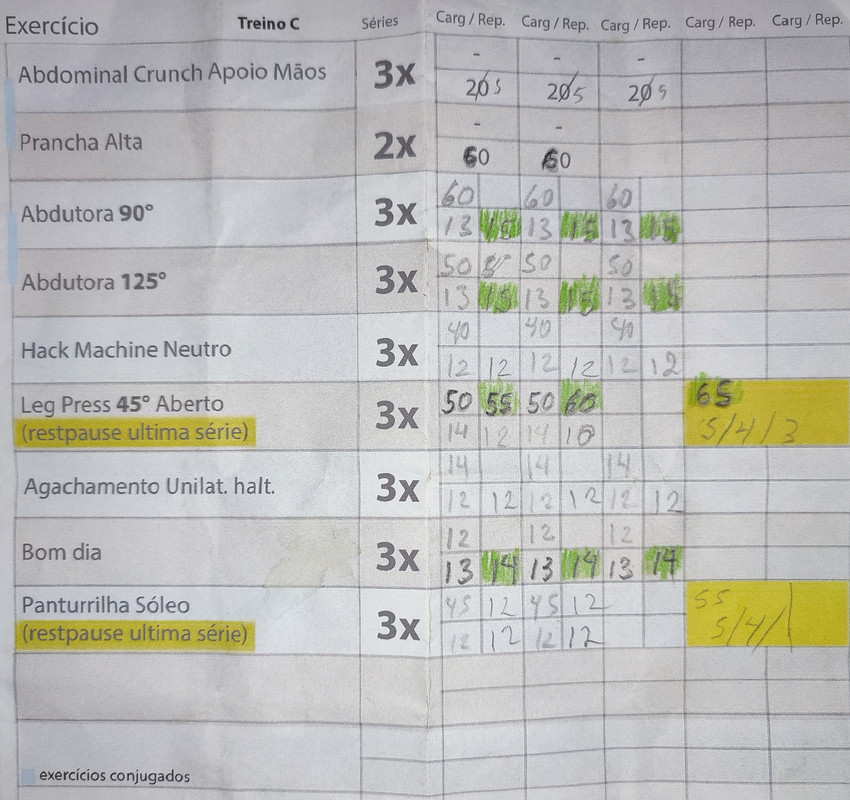 Exercício Treino C Séries Carg / Rep. Carg / Rep. Carg / Rep. Carg / Rep. Carg / Rep.
- - -
Abdominal Crunch Apoio Mãos 3x
20 5 20 5 20 5
- -
Prancha Alta 2x
60 60
60 60 60
Abdutora 90° 3x
13 15 13 15 13 15
50 50 50
Abdutora 125° 3x
13 15 13 15 13 15
40 40 40
Hack Machine Neutro 3x
12 12 12 12 12 12
Leg Press 45° Aberto 3x 50 55 50 60 65
(restpause ultima série) 14 12 14 10 5/4/3
14 14 14
Agachamento Unilat. halt. 3x
12 12 12 12 12 12
12 12 12
Bom dia 3x
13 14 13 14 13 14
Panturrilha Sóleo 3x 45 12 45 12 55
(restpause ultima série) 12 12 12 12 5/4/
exercícios conjugados